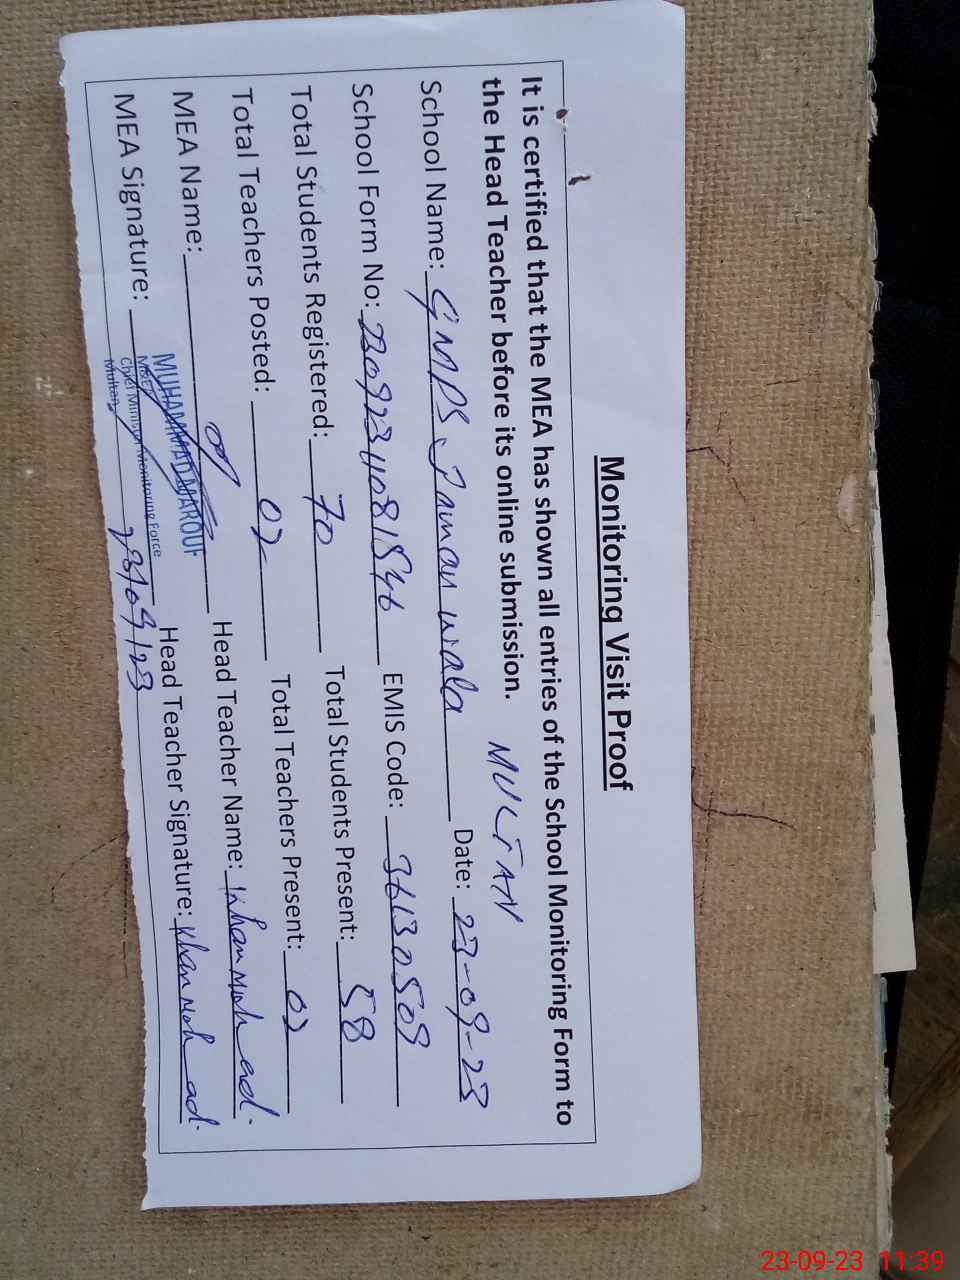 Monitoring Visit Proof
It is certified that the MEA has shown all entries of the School Monitoring Form to
the Head Teacher before its online submission. MULTAN
School Name: GMPS Jaman wala Date: 23-09-23
School Form No: 2309234081546 EMIS Code: 36130509
Total Students Registered: 70 Total Students Present: 58
Total Teachers Posted: 02 Total Teachers Present: 02
MEA Name: Head Teacher Name: Khan
MUHAMMAD MAROUF
MEA Signature: Head Teacher Signature: Khan
Chief Minister Monitoring Force
Multan
23/09/23
23-09-23 11:39